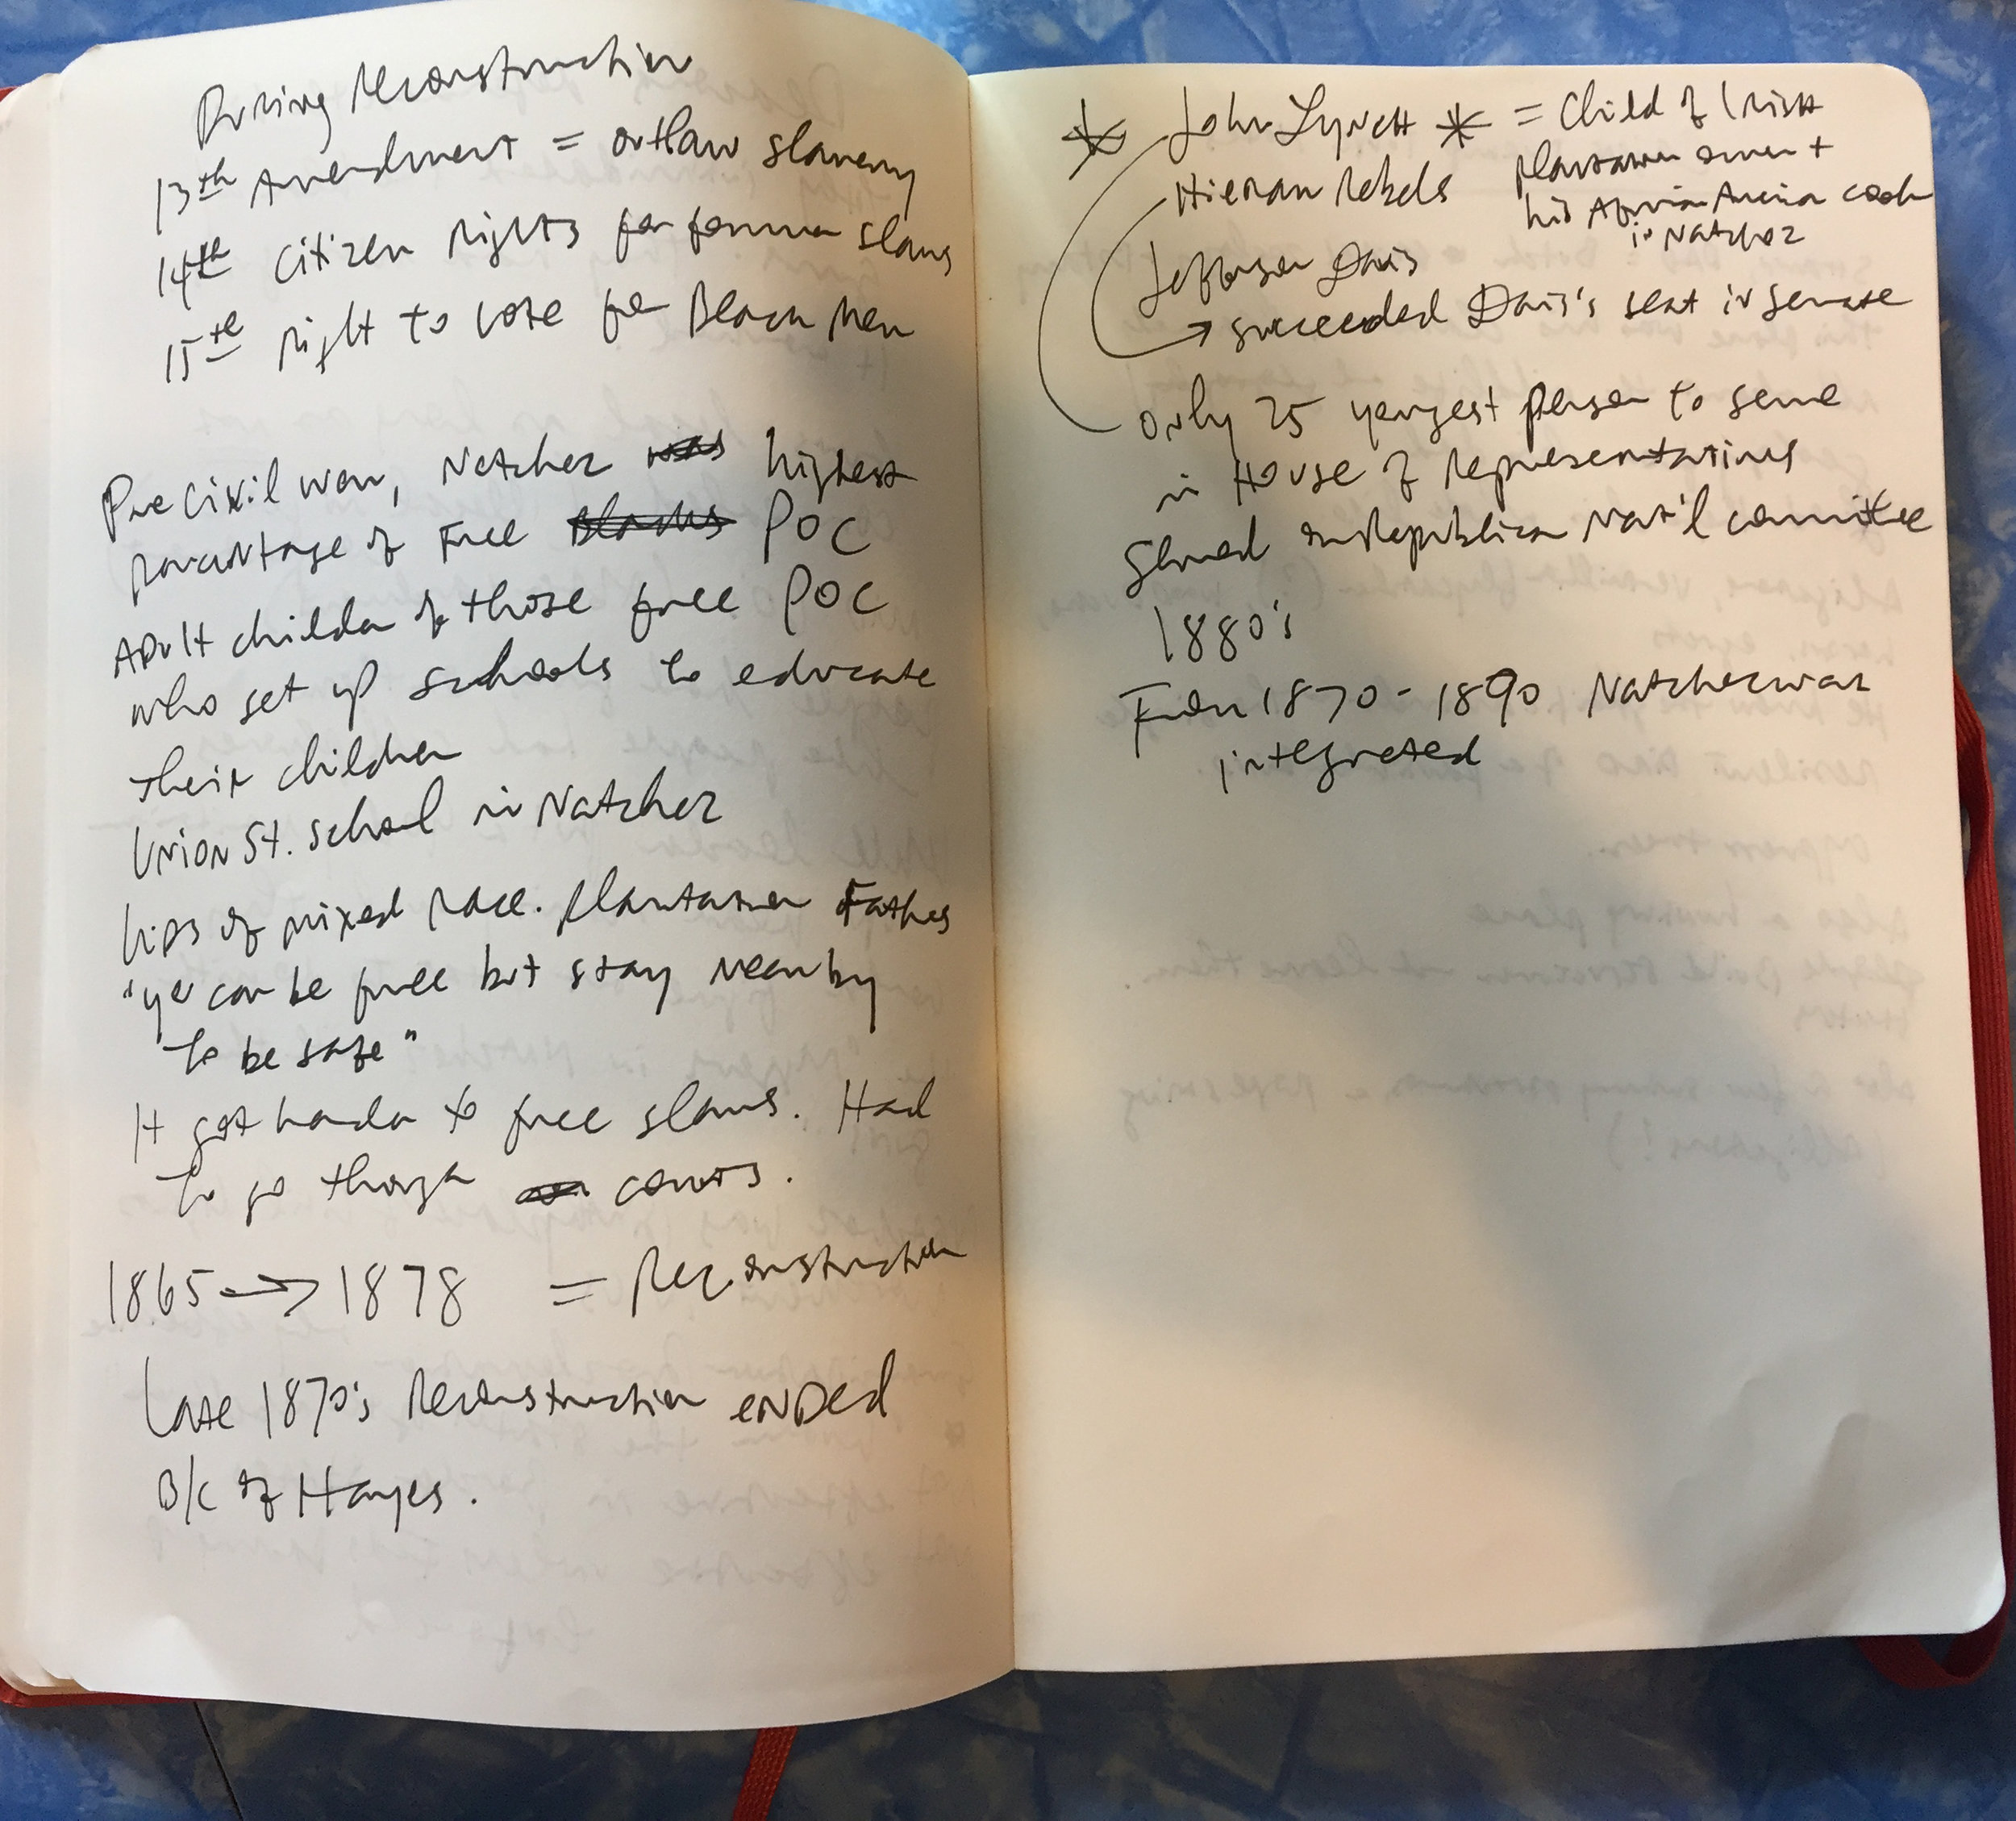 During Reconstruction
13th Amendment = outlaw slavery
14th citizen rights for former slaves
15th right to vote for Black men
Pre Civil war, Natchez was highest
percentage of Free Blacks POC
Adult children of those free POC
who set up schools to educate
their children
Union St. School in Natchez
kids of mixed race. Plantation Fathers
"you can be free but stay nearby
to be safe"
It got harder to free slaves. Had
to go through courts.
1865 → 1878 = Reconstruction
Late 1870's Reconstruction ended
B/c of Hayes.
* John Lynch * = Child of Irish
plantation owner +
his African America cook
in Natchez
Hieram Rebels
Jefferson Davis
→ succeeded Davis's seat in Senate
only 25 youngest person to serve
in House of Representatives
Served on Republican Nat'l committee
1880's
From 1870 - 1890 Natchez was
integrated